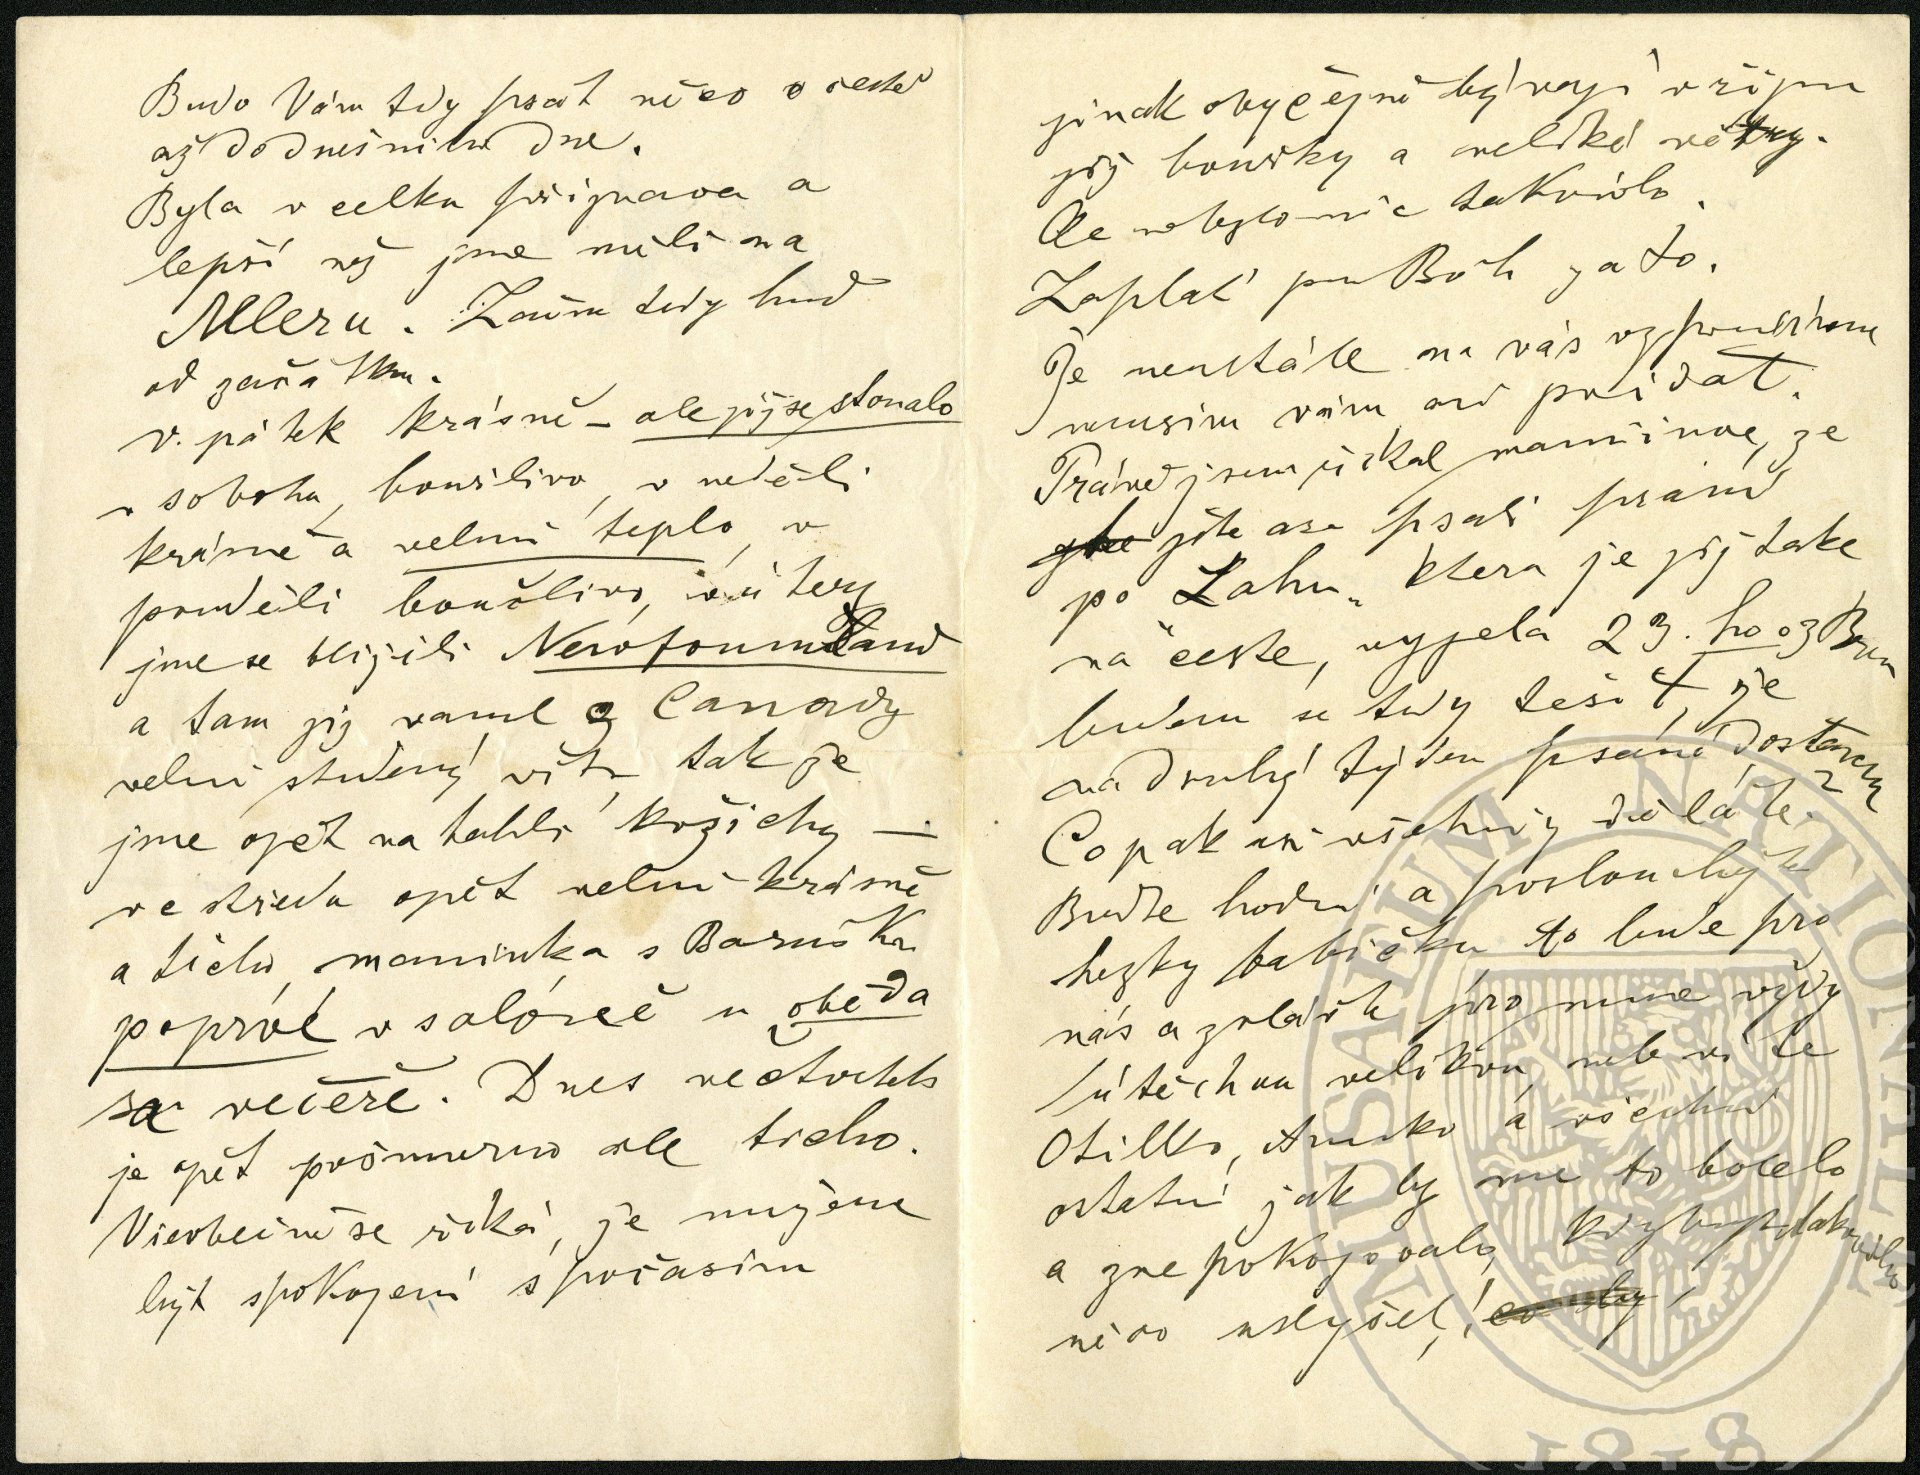 Budu Vám tedy psát něco o cestě
až do dnešního dne.
Byla v celku příjemná a
lepší než jsme měli na
Alleru. Začnu tedy hned
od začátku.
v. pátek krásně – ale již se stonalo
v sobotu, bouřlivo, v neděli
krásně a velmi teplo, v
pondělí bouřlivo, v úterý
jsme se blížili Newfoundland
a tam již vanul z Canady
velmi studený vítr, tak že
jsme opět natáhli kožichy —
ve středu opět velmi krásně
a ticho, maminka s Baruškou
poprvé v salóně u oběda
a večeře. Dnes ve čtvrtek
je opět pošmurno ale ticho.
Všeobecně se říká, že můžeme
být spokojeni s počasím
jinak obyčejně bývají v říjnu
již bouřky a veliké větry.
Ale nebylo nic takového.
Zaplať pán Bůh za to.
Že neustále na vás vzpomínáme
musím vám ani povídat.
Právě jsem říkal mamince, že
jste asi psali psaní
po Lahn„ která je již také
na cestě, vyjela 23. ho oz Brem
budem se tedy těšit, že
na druhý týden psaní dostanem
Copak asi všichni děláte?
Buďte hodní a poslouchejte
hezky babičku to bude pro
nás a zvláště pro mne vždy
útěchou velikou, neb víte
Otilko, Aničko a všichni
ostatní jak by mne to bolelo
a znepokojovalo, kdybych takového
něco uslyšel!
MUSAEUM NATIONALE
1818